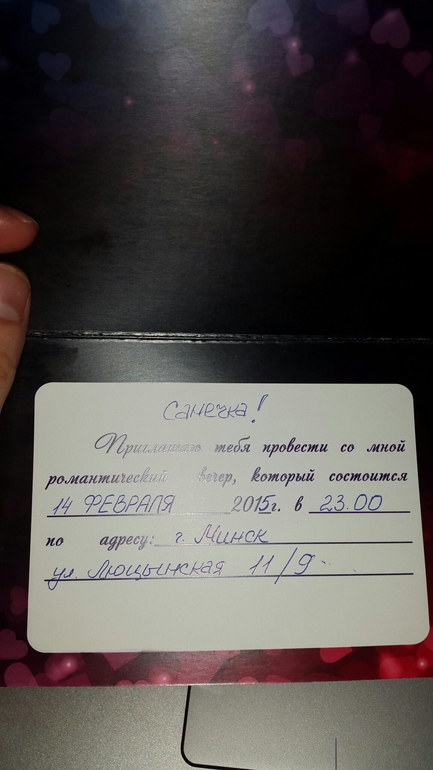 Санечка!
Приглашаю тебя провести со мной
романтический вечер, который состоится
14 ФЕВРАЛЯ 2015г. в 23.00
по адресу: г. Минск
ул. Лющынская 11/9